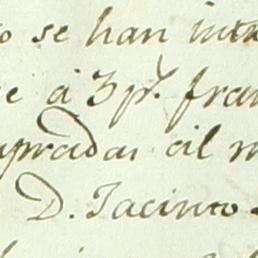 o se han intr
e á 3 p.r fran
pradas al m
D. Jacinto